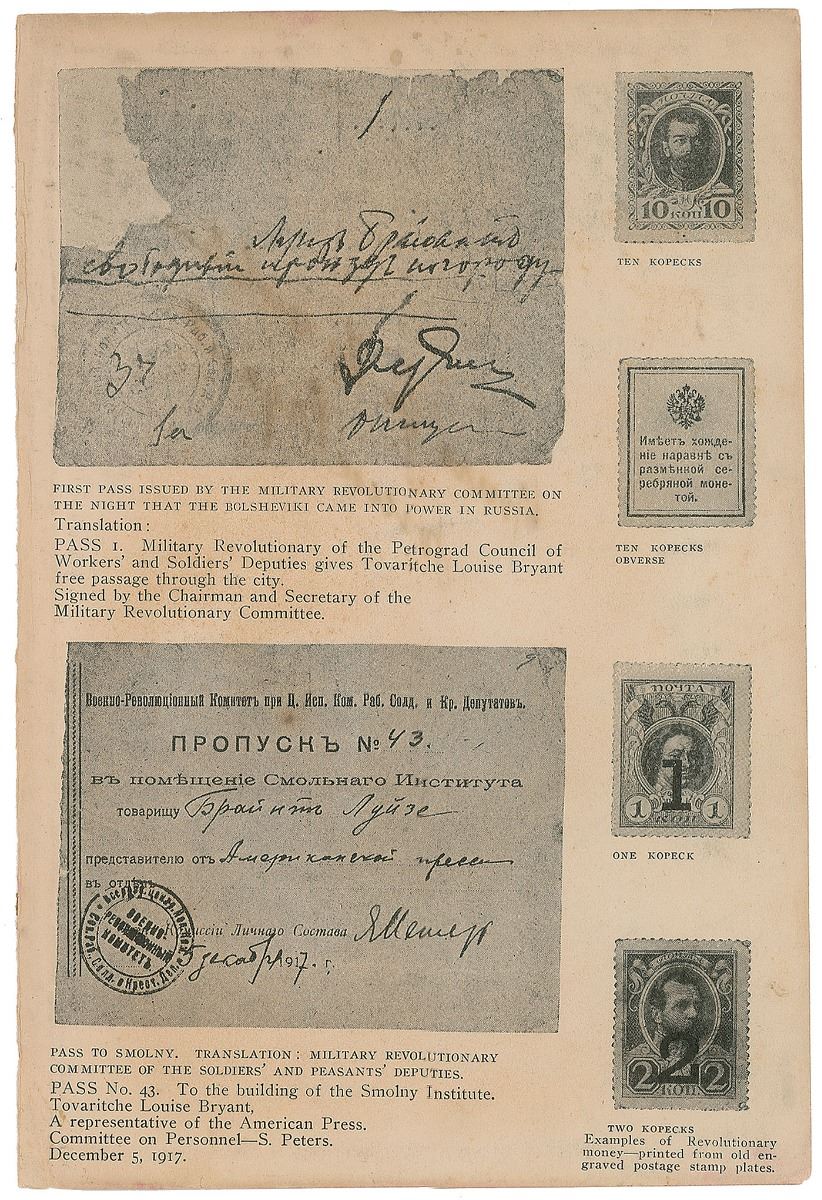 1
Луизъ Брайантъ
свободный проѣздъ по городу
37
FIRST PASS ISSUED BY THE MILITARY REVOLUTIONARY COMMITTEE ON
THE NIGHT THAT THE BOLSHEVIKI CAME INTO POWER IN RUSSIA.
Translation:
PASS 1. Military Revolutionary of the Petrograd Council of
Workers' and Soldiers' Deputies gives Tovaritche Louise Bryant
free passage through the city.
Signed by the Chairman and Secretary of the
Military Revolutionary Committee.
Военно-Революціонный Комитетъ при Ц. Исп. Ком. Раб. Солд. и Кр. Депутатовъ.
ПРОПУСКЪ № 43.
въ помѣщеніе Смольнаго Института
товарищу Брайнтъ Луизе
представителю отъ Американской прессы
въ отдѣлъ
Комиссіи Личнаго Состава
5 декабря 1917. г.
ВОЕННО-
РЕВОЛЮЦІОННЫЙ
КОМИТЕТЪ.
PASS TO SMOLNY. TRANSLATION: MILITARY REVOLUTIONARY
COMMITTEE OF THE SOLDIERS' AND PEASANTS' DEPUTIES.
PASS No. 43. To the building of the Smolny Institute.
Tovaritche Louise Bryant,
A representative of the American Press.
Committee on Personnel—S. Peters.
December 5, 1917.
ПОЧТА
10 КОП 10
TEN KOPECKS
Имѣетъ хожде-
ніе наравнѣ съ
размѣнной се-
ребряной моне-
той.
TEN KOPECKS
OBVERSE
ПОЧТА
1
1 КОП 1
ONE KOPECK
2
2 КОП 2
TWO KOPECKS
Examples of Revolutionary
money—printed from old en-
graved postage stamp plates.